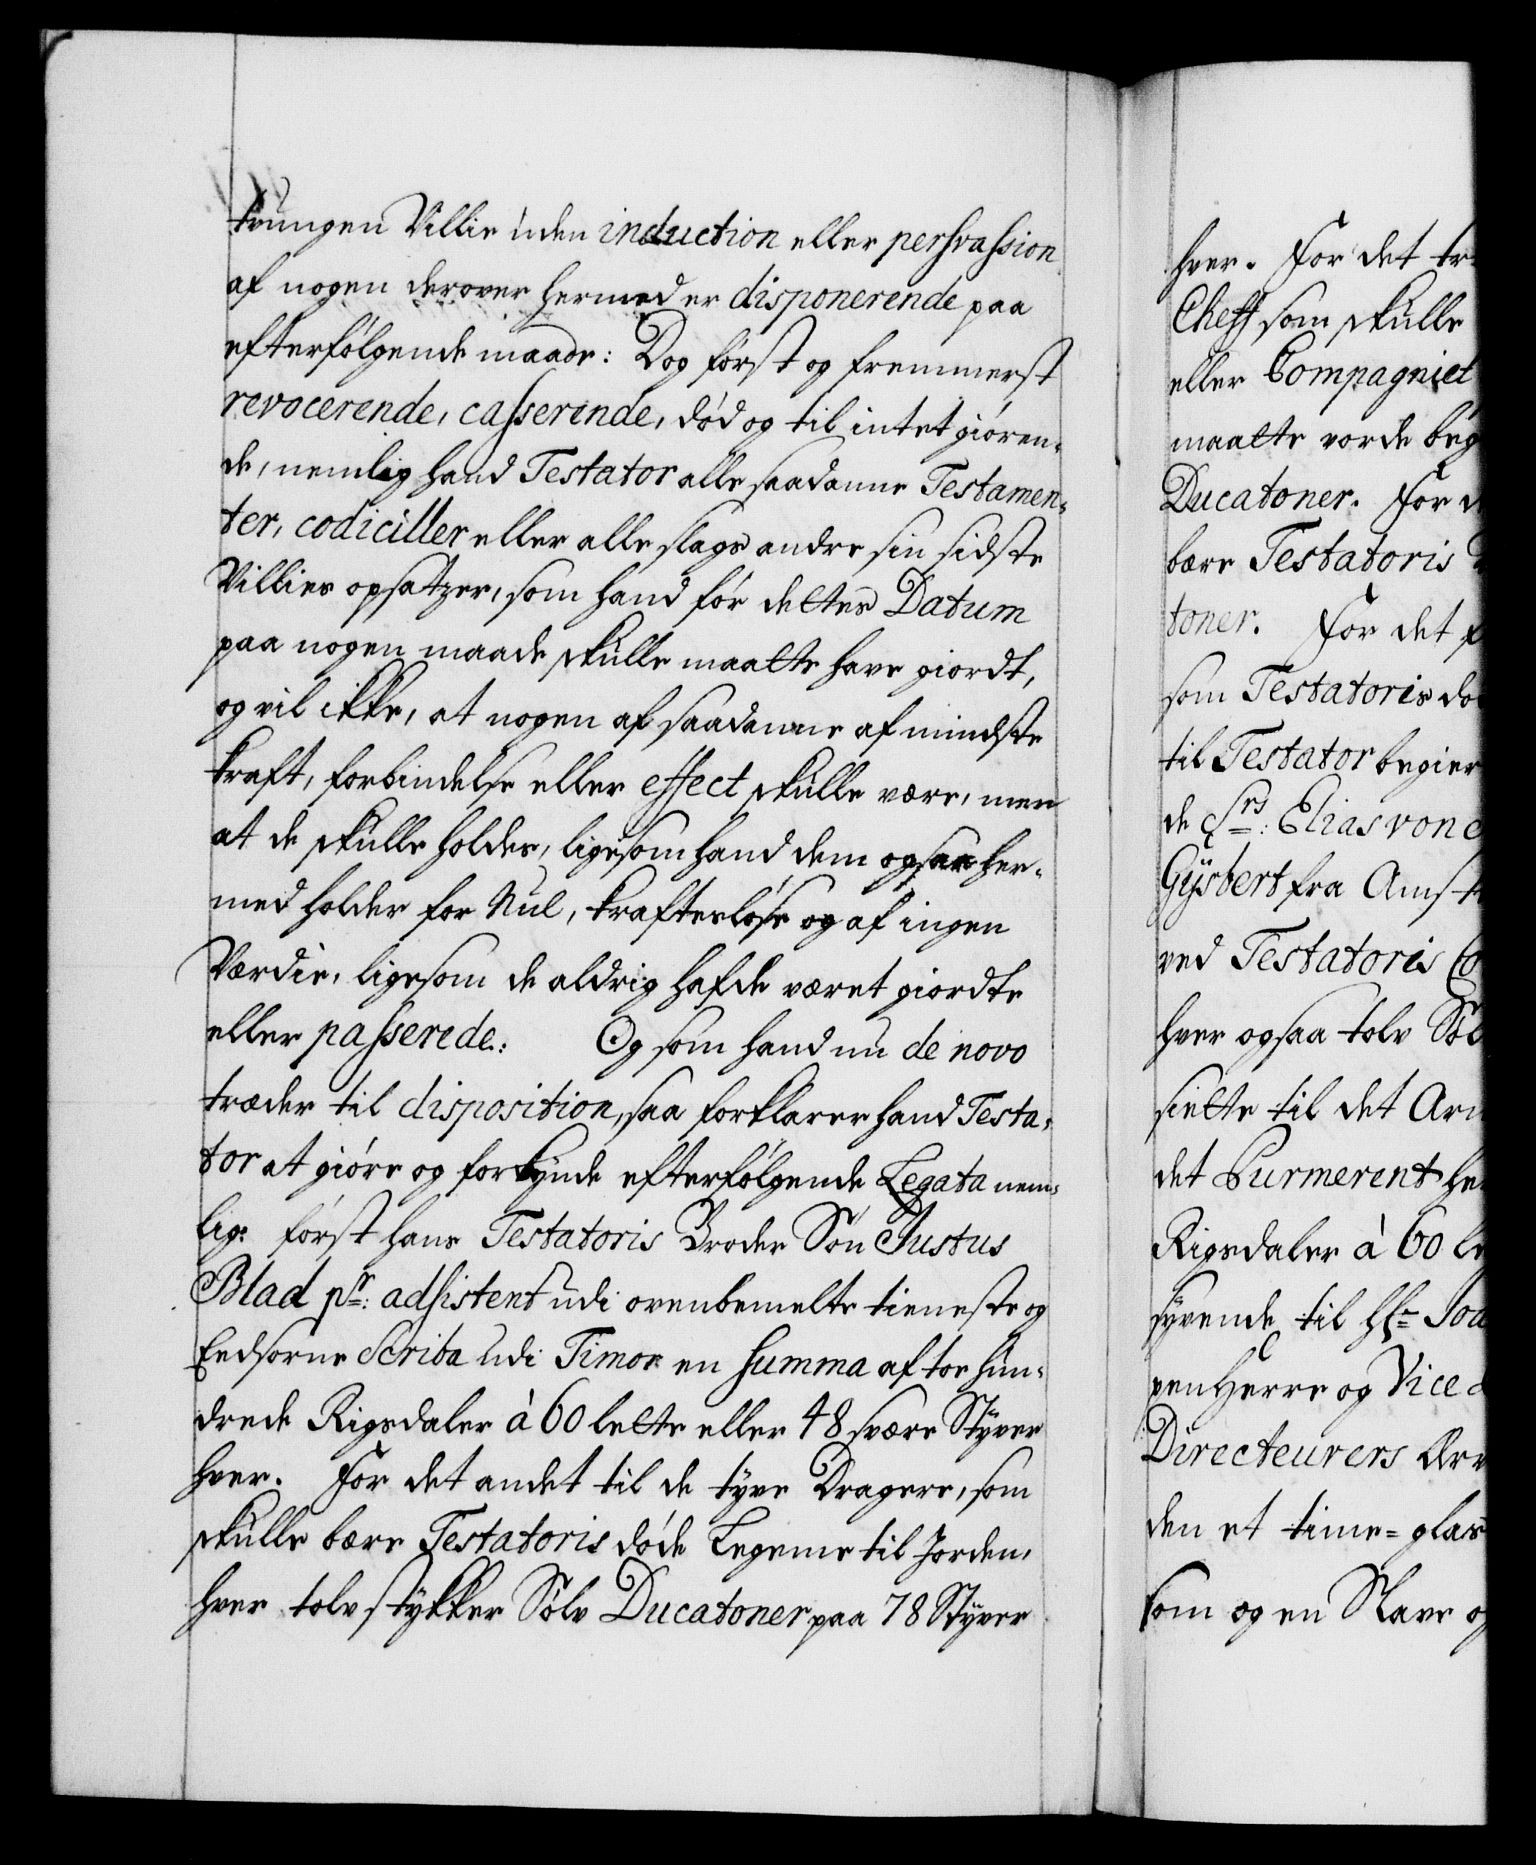 trungen Villie uden induction eller persvassion
af nogen derover hermed er disponerende paa
efterfølgende maade: Dog først og fremmerst
revocerende, casserende, død og til intet giøren-
de, nemlig hand Testator alle saadanne Testamen-
ter, codiciller eller alle slags andre sin sidste
Villies opsatzer, som hand før dettes Datum
paa nogen maade skulle maatte have giordt,
og vil ikke, at nogen af saadanne af mindste
kraft, forbindelse eller effect skulle være, men
at de skulle holdes, ligesom hand dem ogsaa her-
med holder for Nul, kraftesløse og af ingen
Værdie, ligesom de aldrig hafde været giordte
eller passerede: Og som hand nu de novo
træder til disposition, saa forklarer hand Testa-
tor at giøre og forkynde efterfølgende Legata nem-
lig: først hans Testatoris Broder Søn Justus
Blad pr: adsistent udi ovenbemelte tieneste og
Eedsorne Scriba udi Timor en summa af toe hun-
drede Rigsdaler à 60 lette eller 48 svære Styver
hver. For det andet til de tyve Dragere, som
skulle bære Testatoris døde Legeme til Jorden,
hver tolv stykker Sølv Ducatoner paa 78 Styver
hver. For det tr
Cheff som skulle
eller Compagniet
maatte vorde beg
Ducatoner. For d
bære Testatoris
toner. For det f
som Testatoris dø
til Testator begier
de Srs: Elias von
Gijsbert fra Amst
ved Testatoris Co
hver ogsaa tolv Søl
siette til det Arm
det Purmerent he
Rigsdaler à 60 le
syvende til Hr Joa
pen Herre og Vice d
Directeurers Arv
den et time=glas
som og en Slave o